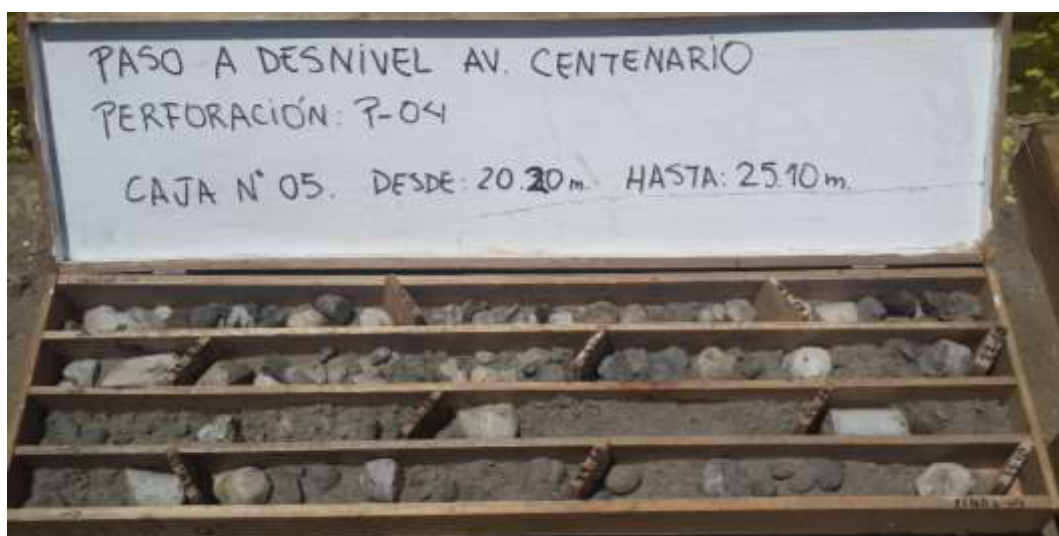 PASO A DESNIVEL AV. CENTENARIO
PERFORACIÓN: P-04
CAJA N° 05. DESDE: 20.20m. HASTA: 25.10m.